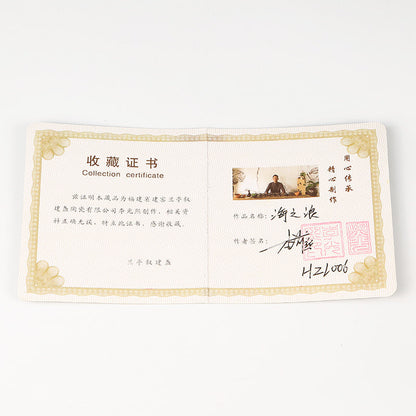 收藏证书
Collection certificate
兹证明本藏品为福建省建窑兰亭叙
建盏陶瓷有限公司李光熙创作，相关资
料正确无误，特立此证书，感谢收藏。
兰亭叙建盏
用心传承
精心制作
作品名称：海之浪
作者签名：
HZL006